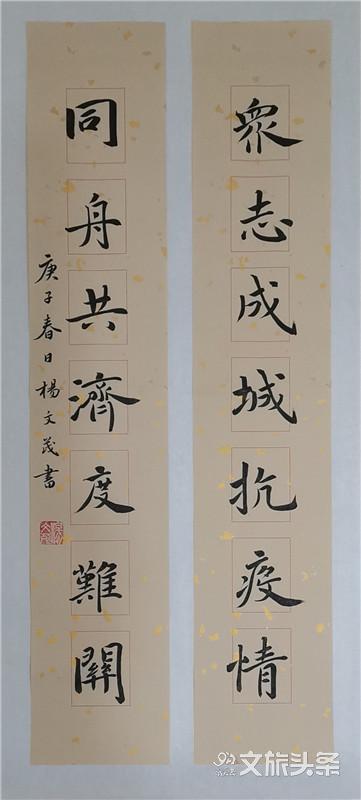 眾志成城抗疫情
同舟共濟度難關
庚子春日楊文茂書
文旅头条